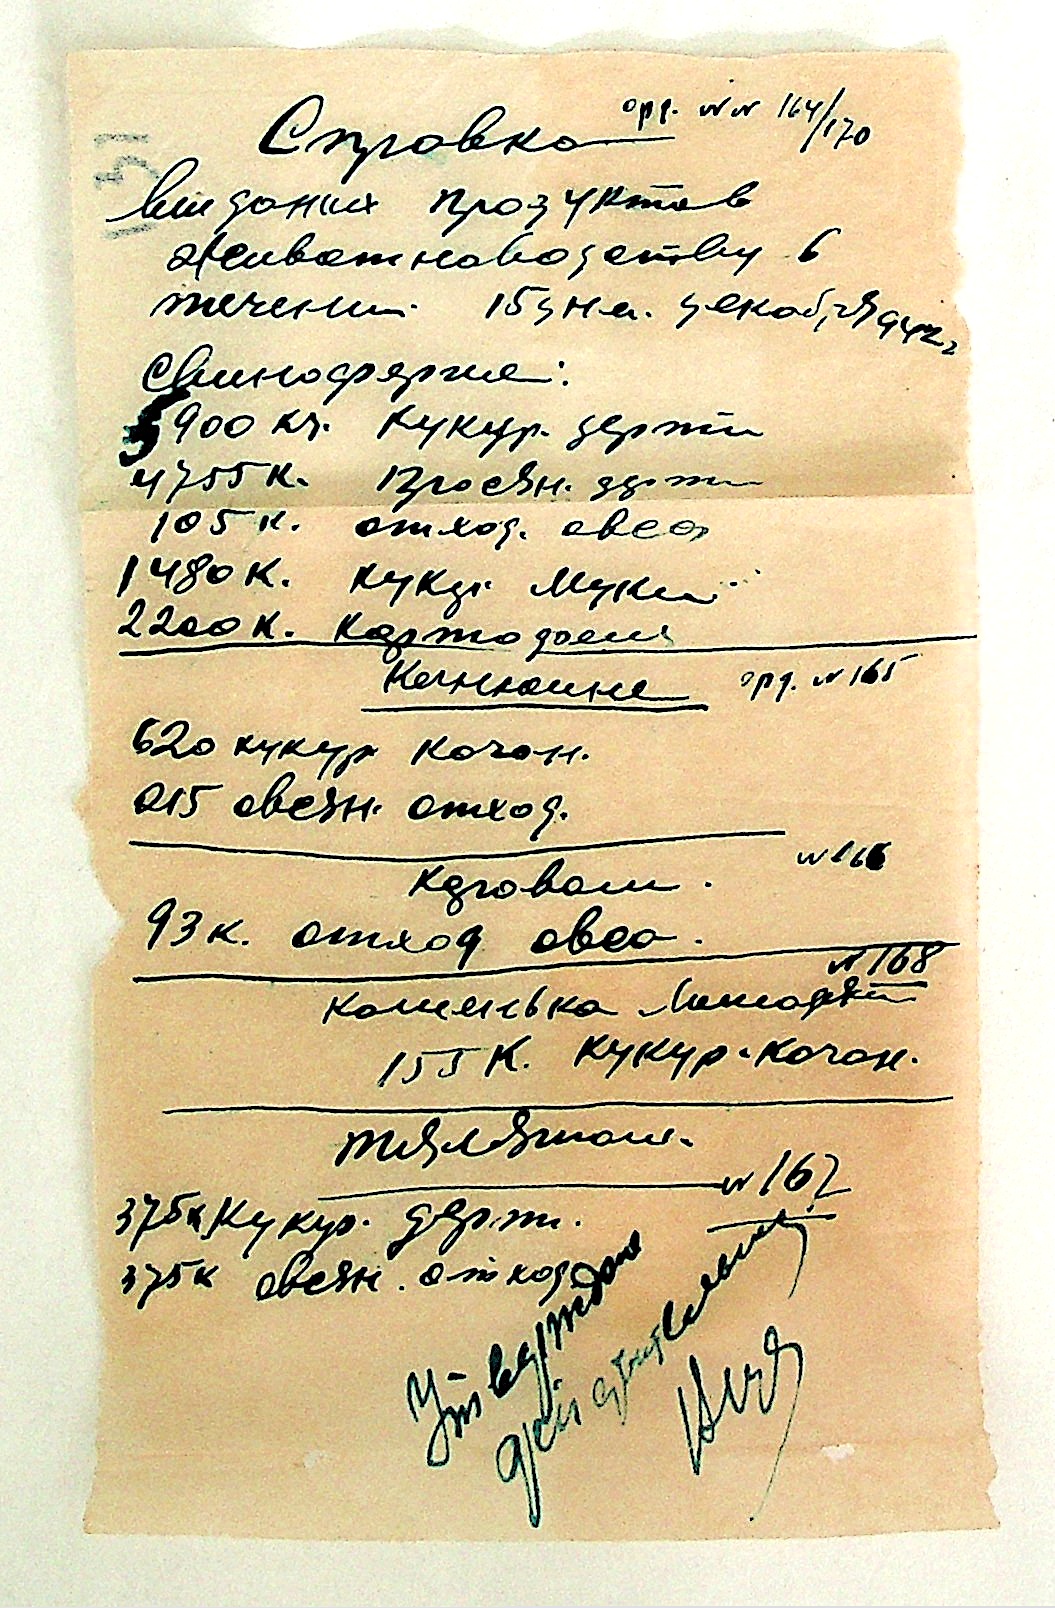 Справка орд. №№ 164/170
выданих продуктов
животноводству в
течении 15 дне. декабря 942 г
Свиноферме:
5900 кг. кукур. дерти
4755 к. просян. дерти
105 к. отход. овса
1480 к. кукур. муки
2200 к. картофеля
Конюшне орд. № 165
620 кукур кочан.
215 овсян. отход.
№ 166
Коровам.
93 к. отход овса.
№ 168
лошадям
155 к. кукур. кочан.
Телятам.
№ 167
375 к кукур. дерти.
375 к овсян. отход
Утверждаю